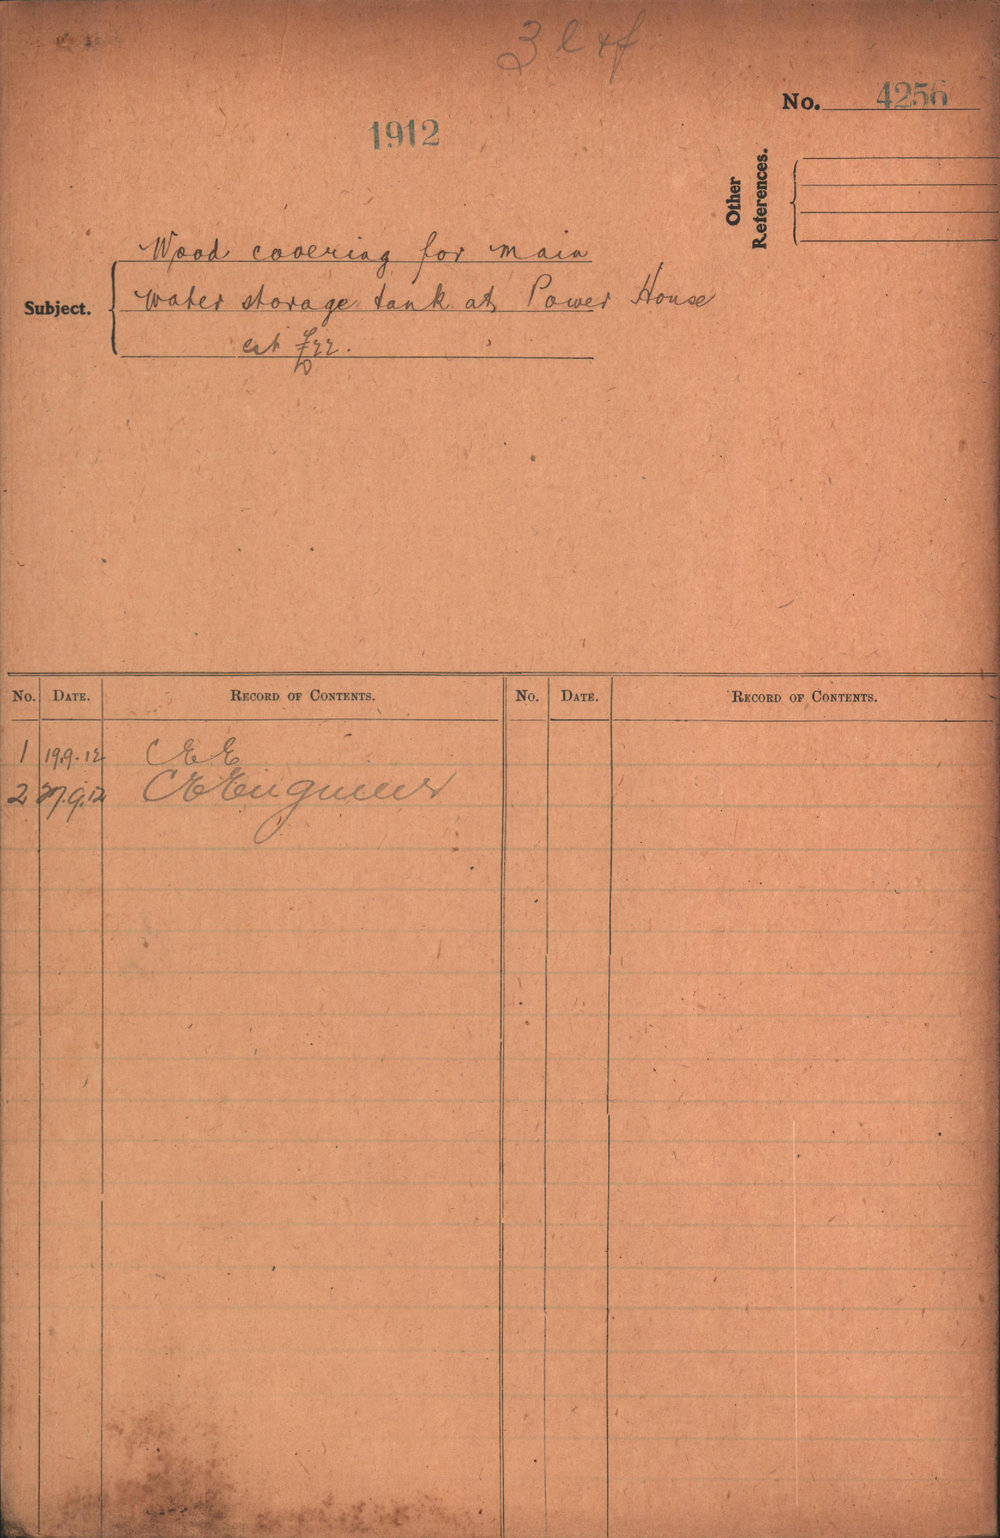 1912
No. 4256
Other References.
Subject.
Wood covering for main
water storage tank at Power House
est £22.
No. DATE. RECORD OF CONTENTS. No. DATE. RECORD OF CONTENTS.
1 19.9.12 C E E
2 .9.12 C E Engineer